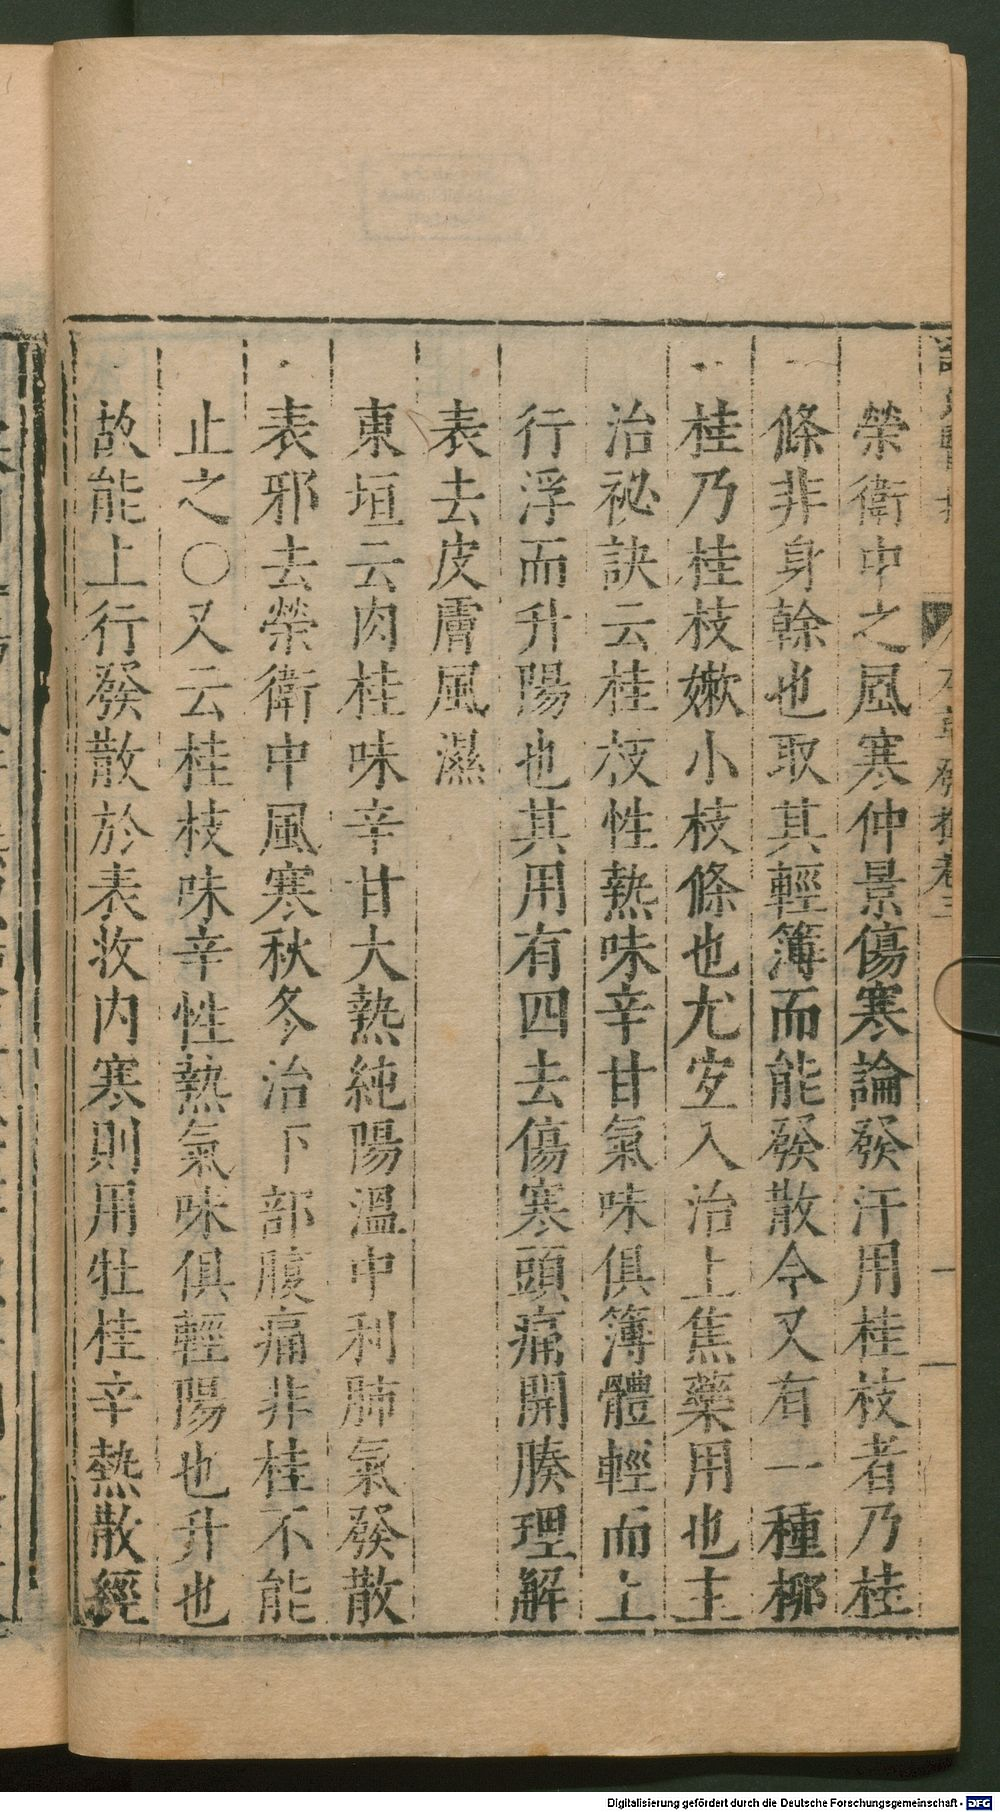 榮衛中之風寒仲景傷寒論發汗用桂枝者乃桂
條非身幹也取其輕簿而能發散今又有一種栁
桂乃桂枝嫰小枝條也尤宜入治上焦藥用也主
治祕訣云桂枝性熱味辛甘氣味俱簿體輕而上
行浮而升陽也其用有四去傷寒頭痛開腠理解
表去皮膚風濕
東垣云肉桂味辛甘大熱純陽溫中利肺氣發散
表邪去榮衛中風寒秋冬治下部腹痛非桂不能
止之○又云桂枝味辛性熱氣味俱輕陽也升也
故能上行發散於表收内寒則用牡桂辛熱散經
本草發揮卷三
Digitalisierung gefördert durch die Deutsche Forschungsgemeinschaft - DFG